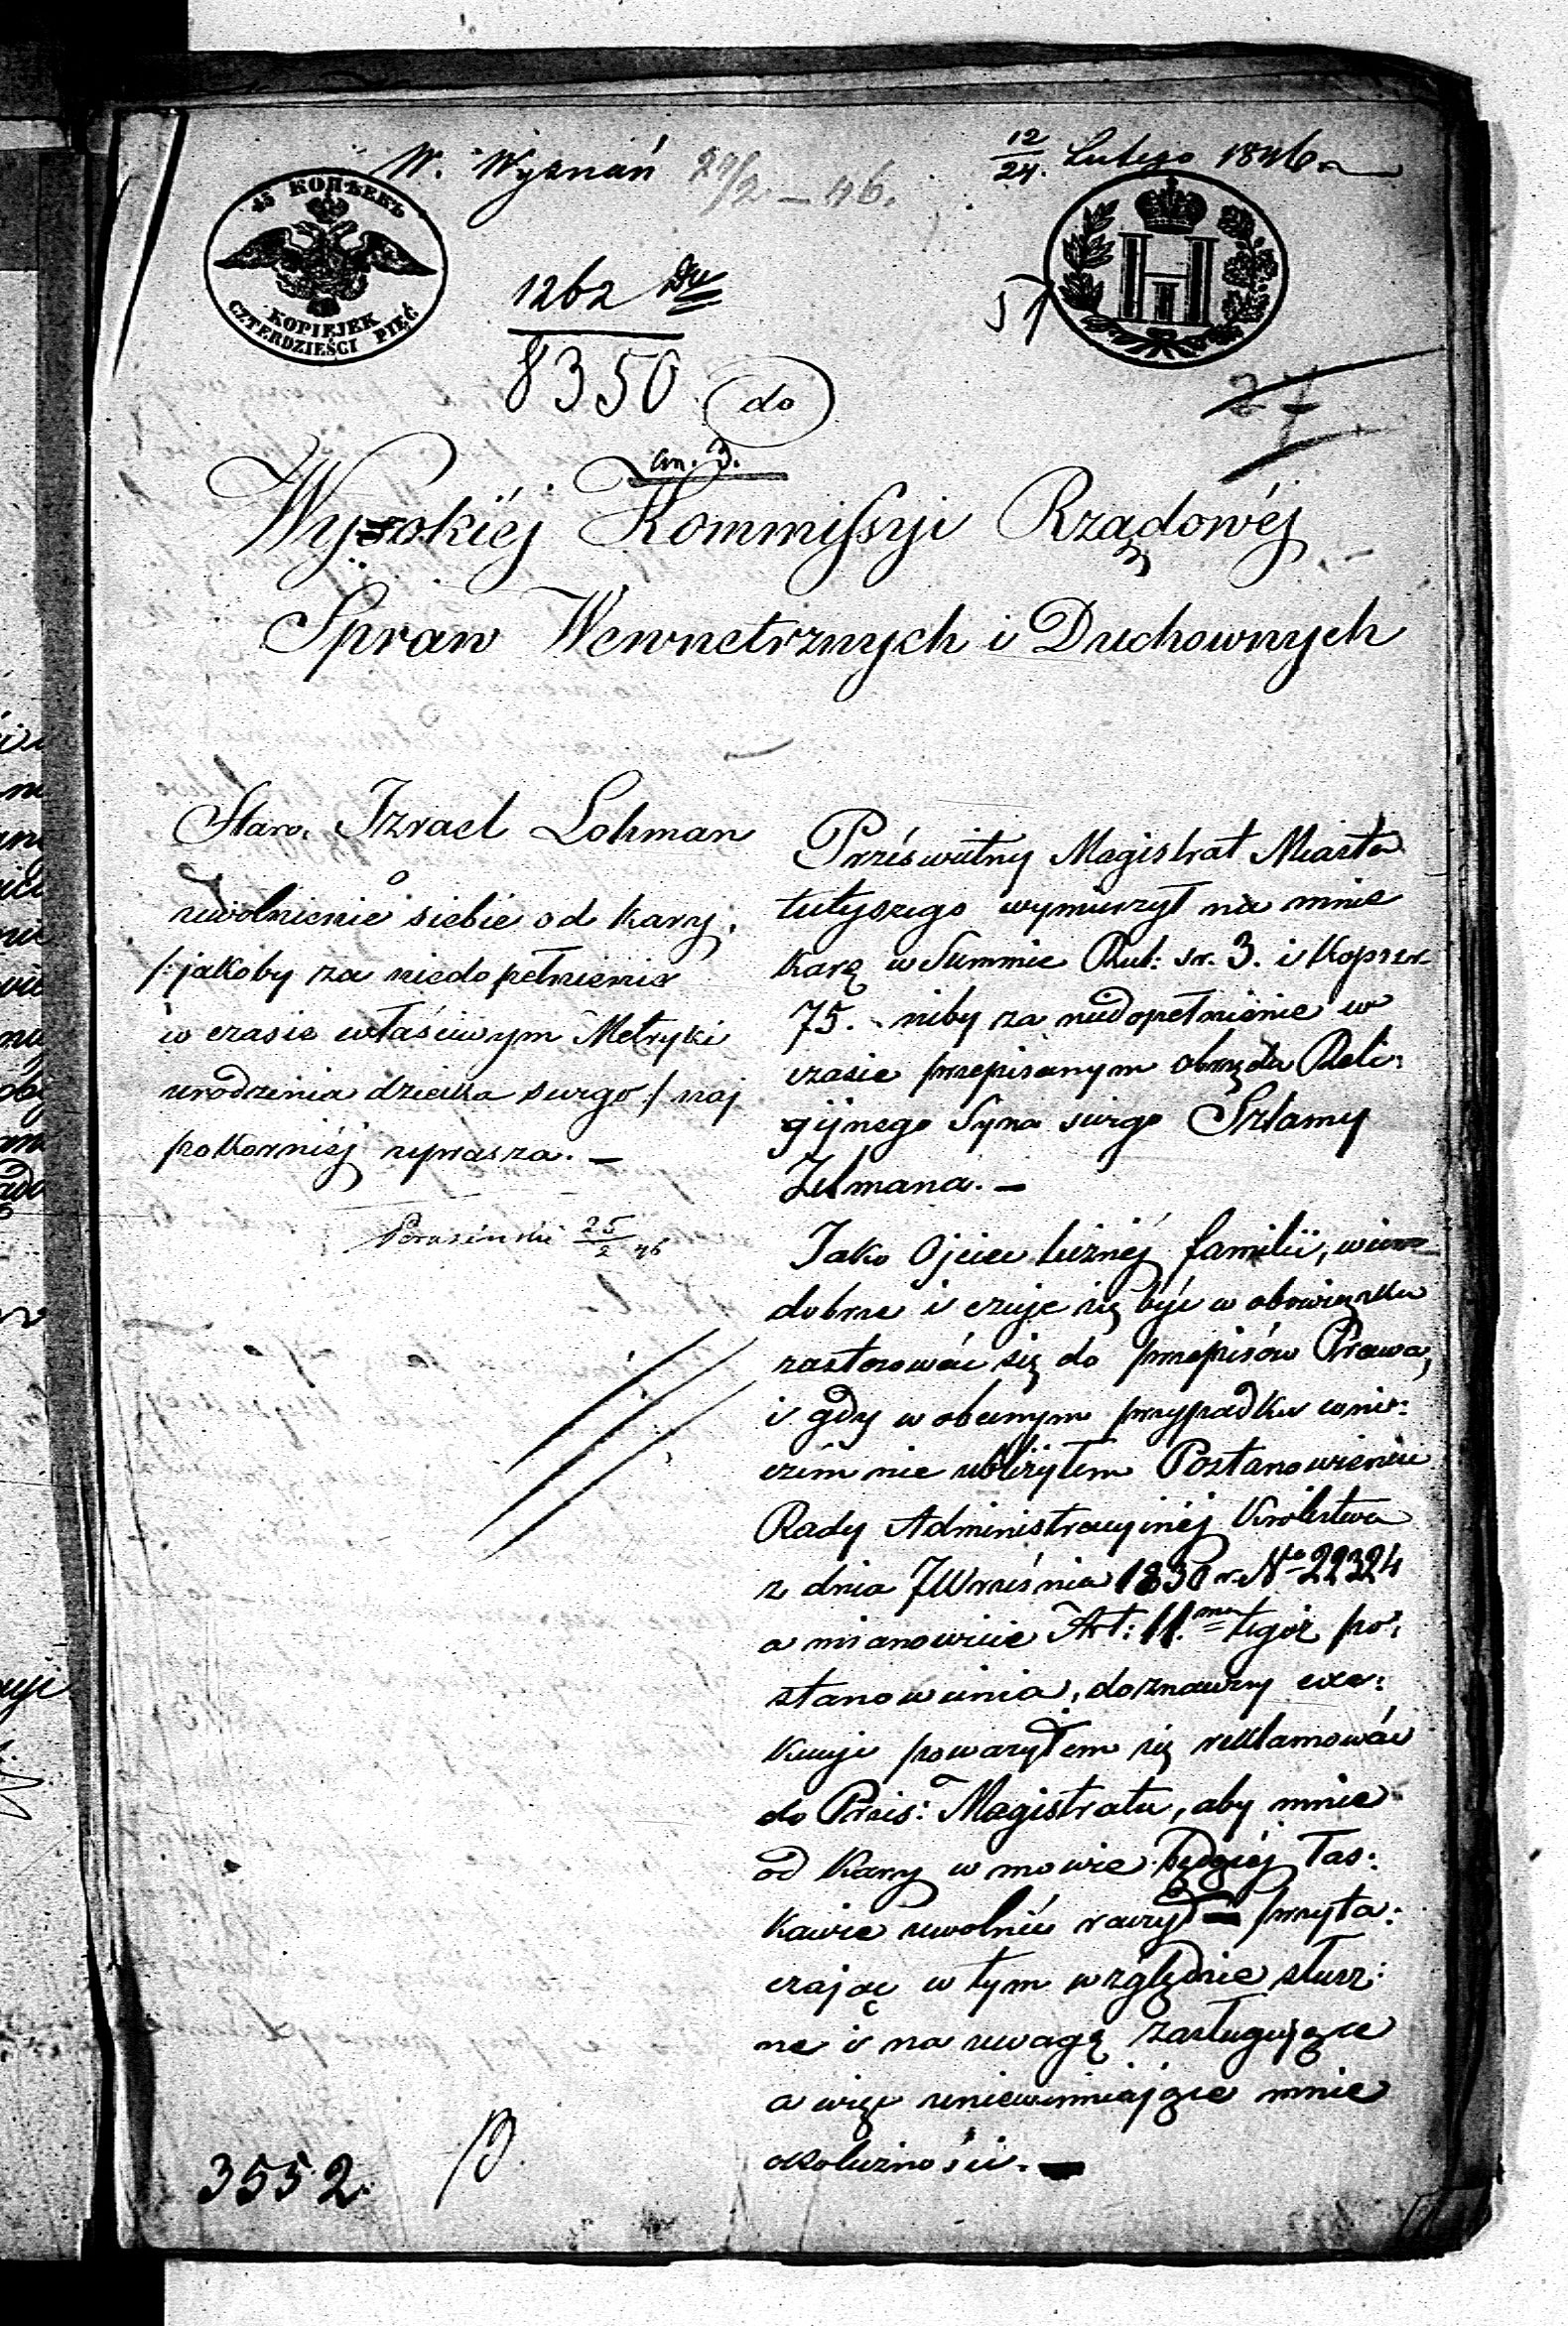 W. Wyznań 27/2 – 46.
12/24. Lutego 1846 r.
45 КОПѢЕКЪ
KOPIEJEK
CZTERDZIEŚCI PIĘĆ
H
1262
8350
27
do
Wysokiéj Kommissyi Rządowéj
Spraw Wewnetrznych i Duchownych
Staro. Izrael Lohman
o
uwolnienie siebie od kary,
/: jakoby za niedopełnienie
w czasie właściwym Metryki
urodzenia dziecka swego :/ naj
pokorniéj uprasza. —
25/2 46
Prześwietny Magistrat Miasta
tutejszego wymierzył na mnie
karę w Summie Rub: sr. 3. i Kop: sr.
75. niby za niedopełnienie w
czasie przepisanym obrzędu Reli:
gijnego Syna swego Szlamy
Zelmana. —
Jako Ojciec licznéj familii, wiem
dobrze i czuje się być w obowiązku
zastosować się do przepisów Prawa,
i gdy w obecnym przypadku w ni:
czém nie ubliżyłem Postanowieniu
Rady Administracyjnéj Królestwa
z dnia 7 Września 1830 r. No 22324
a mianowicie Art: 11.mu tegóż po:
stanowienia, doznawszy exe:
kucyi poważyłem się reklamować
do Prześ: Magistratu, aby mnie
od Kary w mowie będącéj łas:
kawie uwolnić raczył przyta:
czając w tym względzie słusz:
ne i na uwagę zasługujące
a więc uniewinniające mnie
okoliczności. —
3552.